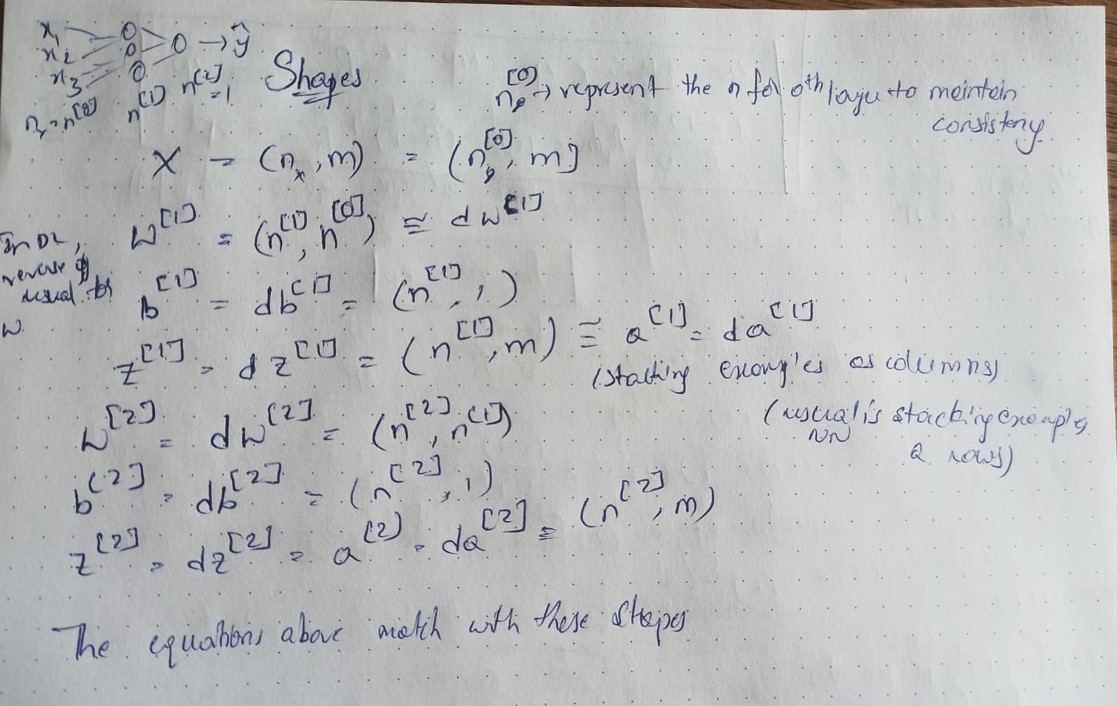 x₁
x₂
x₃
→ ŷ
nₓ = n^[0]
n^[1]
n^[2] = 1
Shapes
n^[0] → represent the n for 0th layer to maintain
consisteny.
X = (nₓ, m) = (n^[0], m)
In DL,
reverse of
usual
W
W^[1] = (n^[1], n^[0]) ≡ dW^[1]
b^[1] = db^[1] = (n^[1], 1)
z^[1] = dz^[1] = (n^[1], m) ≡ a^[1] = da^[1]
(stacking examples as columns)
(usual is stacking examples
NN
rows)
W^[2] = dW^[2] = (n^[2], n^[1])
b^[2] = db^[2] = (n^[2], 1)
z^[2] = dz^[2] = a^(2) = da^[2] = (n^[2], m)
The equations above match with these shapes